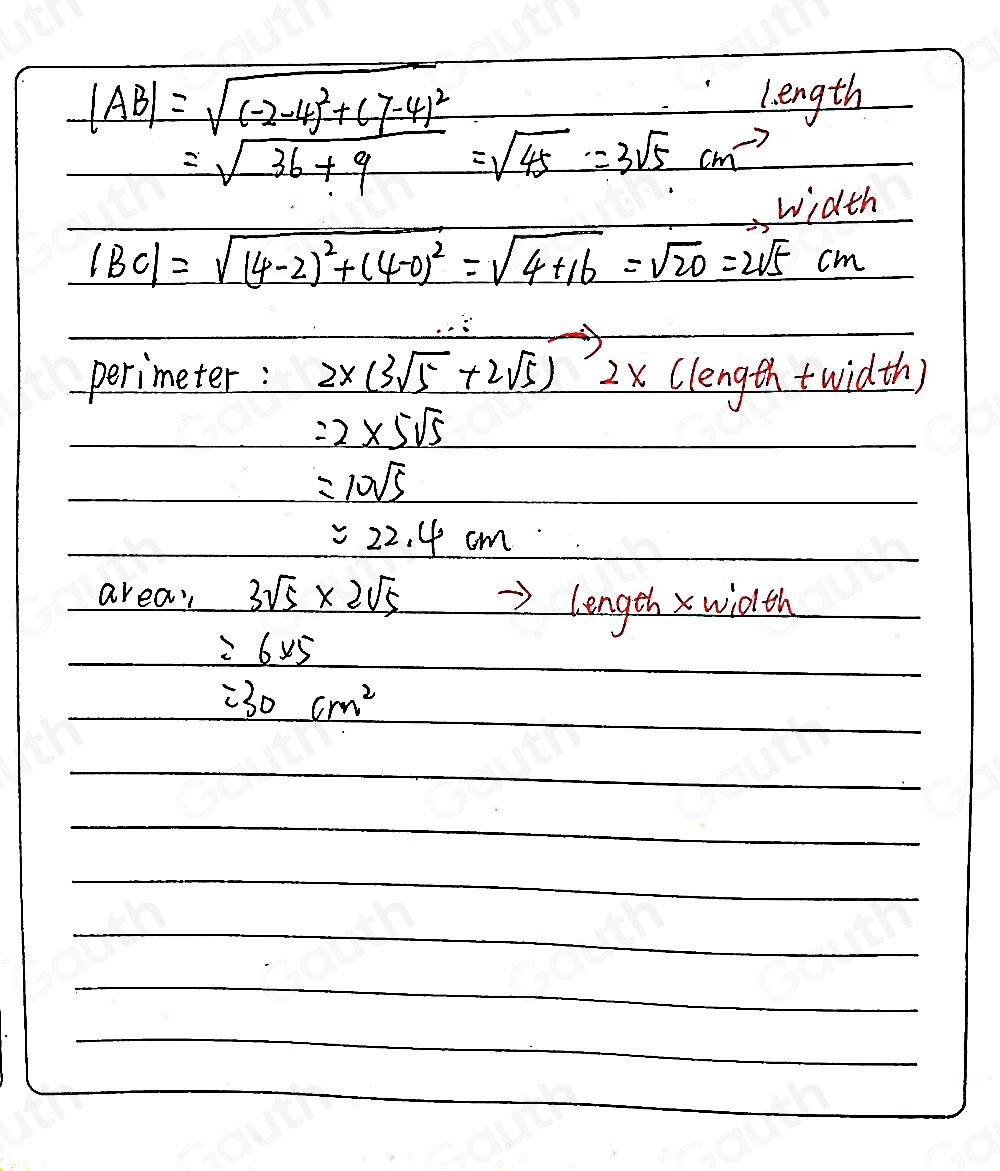 |AB| = √(-2-4)²+(7-4)² Length
= √36+9 = √45 = 3√5 cm →
width
|BC| = √(4-2)²+(4-0)² = √4+16 = √20 = 2√5 cm
perimeter : 2×(3√5+2√5) → 2× (length + width)
=2×5√5
=10√5
≈ 22.4 cm
area: 3√5 × 2√5 → length × width
= 6×5
=30 cm²
Gauth